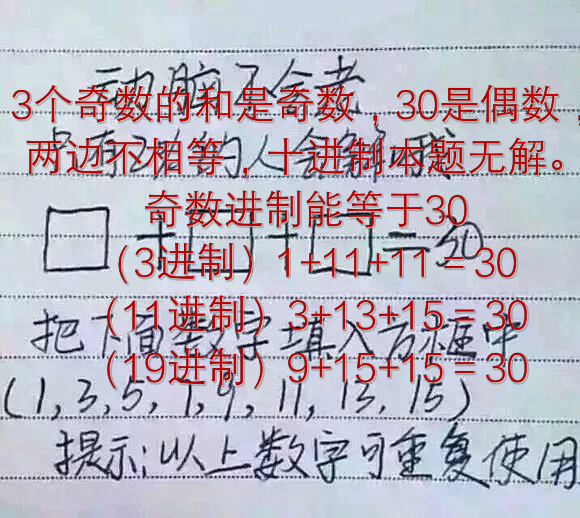 动脑不合老
3个奇数的和是奇数，30是偶数，
两边不相等，十进制本题无解。
奇数进制能等于30
□+□+□=30
（3进制）1+11+11=30
（11进制）3+13+15=30
把下面数字填入方框中
（19进制）9+15+15=30
(1,3,5,7,9,11,13,15)
提示:以上数字可重复使用